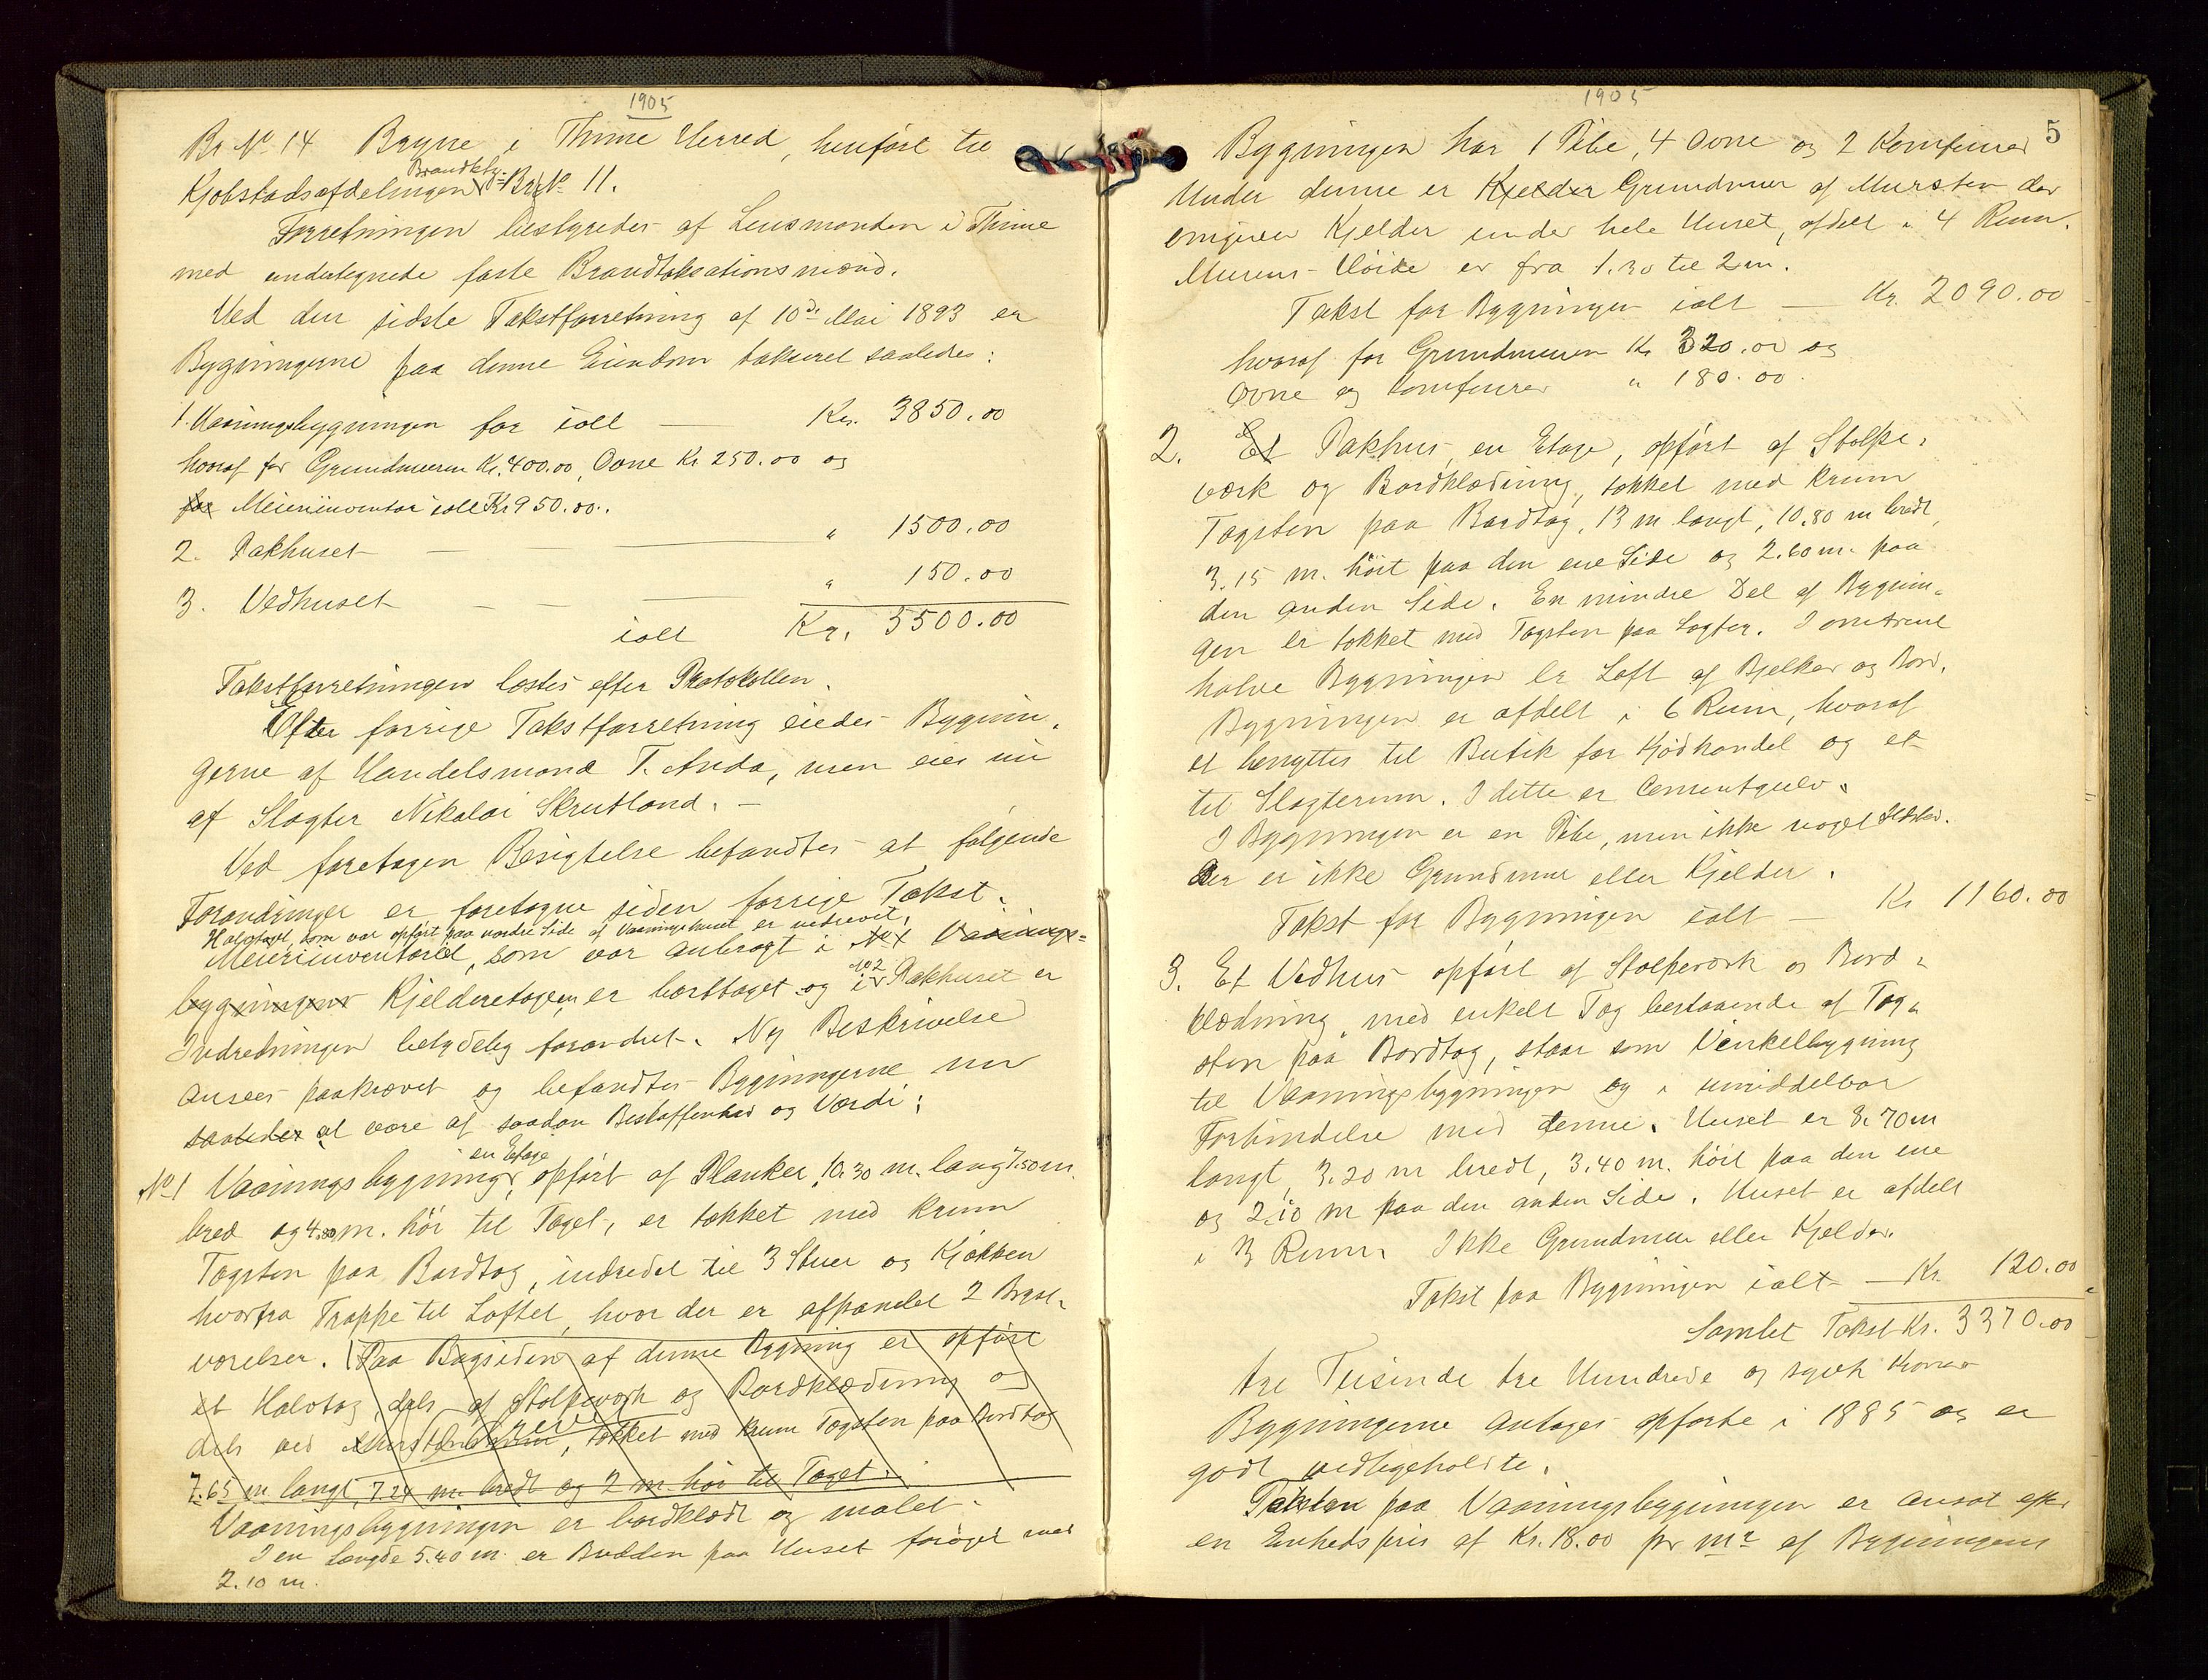 1905
Br. No. 14 Bryne i Thime Herred, henført til
Kjøbstadsafdelingen Brandkfg. Br.No. 11.
Forretningen bestyredes af Lensmanden i Thime
med undertegnede faste Brandtaksationsmænd.
Ved den sidste Takstforretning af 10de Mai 1893 er
Bygningerne paa denne Eiendom takseret saaledes:
1. Vaaningsbygningen for ialt — Kr. 3850.00
hvoraf for Grundmuren Kr. 400.00, Ovne Kr 250.00 og
for Meieriinventar ialt Kr 950.00.
2. Pakhuset — — " 1500.00
3. Vedhuset — — — " 150.00
ialt Kr. 5500.00
Takstforretningen læstes efter Protokollen.
Efter forrige Takstforretning eiedes Bygnin-
gerne af Handelsmand T. Anda, men eies nu
af Slagter Nikolai Skrudland. —
Ved foretagen Besigtelse befandtes at følgende
Forandringer er foretagne siden forrige Takst.
Halvtaget, som var opført paa nordre Side af Vaaningshuset er nedrevet,
Meieriinventariet, som var anbragt i No 1 Vaanings-
bygningens Kjelderetagen, er borttaget og i No 2 Pakhuset er
Indredningen betydelig forandret. Ny Beskrivelse
ansees paakrævet og befandtes Bygningerne nu
saaledes at være af saadan Beskaffenhed og Værdi:
No 1 Vaaningsbygning, en Etage opført af Planker, 10.30 m. lang 7.50 m.
bred og 4.80 m. høi til Taget, er tækket med krum
Tagsten paa Bordtag, indredet til 3 Stuer og Kjøkken
hvorfra Trappe til Loftet, hvor der er afpanelet 2 Bryst-
værelser. Paa Bagsiden af denne Bygning er opført
et Halvtag, dels af Stolpeværk og Bordklædning og
dels ved Murstensmur, tækket med krum Tagsten paa Bordtag
7.65 m langt, 7.24 m. bredt og 2 m. høi til Taget.
Vaaningsbygningen er bordklædt og malet.
I en Længde 5.40 m. er Bredden paa Huset forøget med
2.10 m.
1905
5
Bygningen har 1 Pibe, 4 Ovne og 2 Komfurer
Under denne er Kjelder Grundmur af Mursten der
omgiver Kjelder under hele Huset, afdelt i 4 Rum.
Murens Høide er fra 1.30 til 2 m.
Takst for Bygningen ialt — Kr. 2090.00
hvoraf for Grundmuren Kr 320.00 og
Ovne og Komfurer " 180.00.
2. Et Pakhus, en Etage, opført af Stolpe-
værk og Bordklædning, tækket med krum
Tagsten paa Bordtag, 13 m langt, 10.80 m bredt,
3.15 m. høit paa den ene Side og 2.60 m. paa
den anden Side. En mindre Del af Bygnin-
gen er tækket med Tagsten paa Lægter. I omtrent
halve Bygningen er Loft af Bjelker og Bord.
Bygningen er afdelt i 6 Rum, hvoraf
et benyttes til Butik for Kjødhandel og et
til Slagterum. I dette er Cementgulv.
I Bygningen er en Pibe, men ikke noget Ildsted.
Der er ikke Grundmur eller Kjelder.
Takst for Bygningen ialt — Kr 1160.00
3. Et Vedhus opført af Stolpeværk og Bord-
klædning, med enkelt Tag bestaaende af Tag-
sten paa Bordtag, staar som Vinkelbygning
til Vaaningsbygningen og i umiddelbar
Forbindelse med denne. Huset er 8.70 m
langt, 3.20 m bredt, 3.40 m. høit paa den ene
og 2.10 m paa den anden Side. Huset er afdelt
i 3 Rum. Ikke Grundmur eller Kjelder.
Takst paa Bygningen ialt — Kr. 120.00
Samlet Takst Kr. 3370.00
tre Tusinde tre Hundrede og sytti Kroner
Bygningerne antages opførte i 1885 og er
godt vedligeholdte.
Taksten paa Vaaningsbygningen er ansat efter
en Enhedspris af Kr. 18.00 pr m² af Bygningens